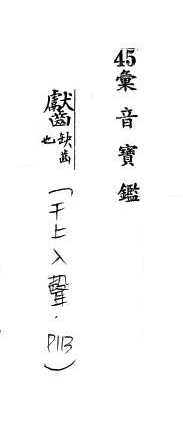 45彙音寶鑑
齾缺齒也
(干上入聲.P113)